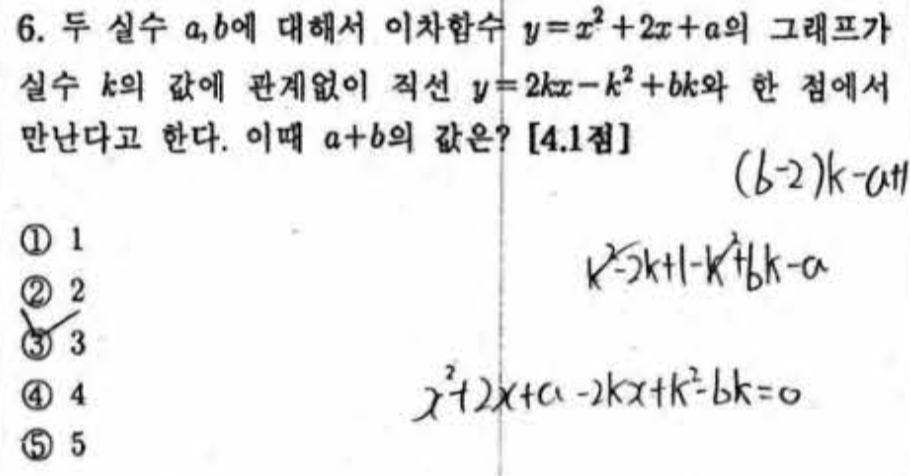 6. 두 실수 a, b에 대해서 이차함수 y=x²+2x+a의 그래프가
실수 k의 값에 관계없이 직선 y=2kx-k²+bk와 한 점에서
만난다고 한다. 이때 a+b의 값은? [4.1점]
(b-2)k-a+1
① 1
k²-2k+1-k²+bk-a
② 2
③ 3
x²+2x+a-2kx+k²-bk=0
④ 4
⑤ 5